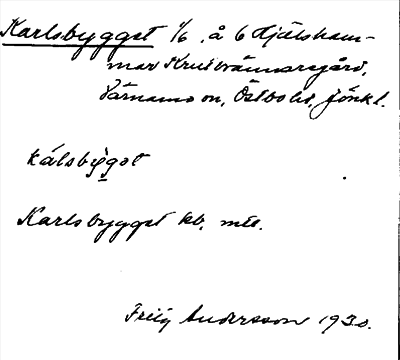 Karlsbygget 1/6, å 6 Hjälsham-
mar Krusvännaregård,
Värnamo sn, Östbo hd, Jönk l.
kálsbỳgət
Karlsbygget kb, mtl.
Frity Andersson 1930.